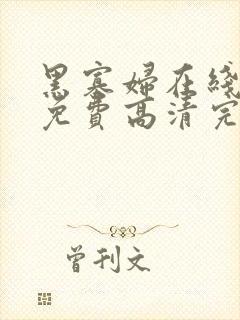 黑寡妇在线
免费高清完
曾刊文